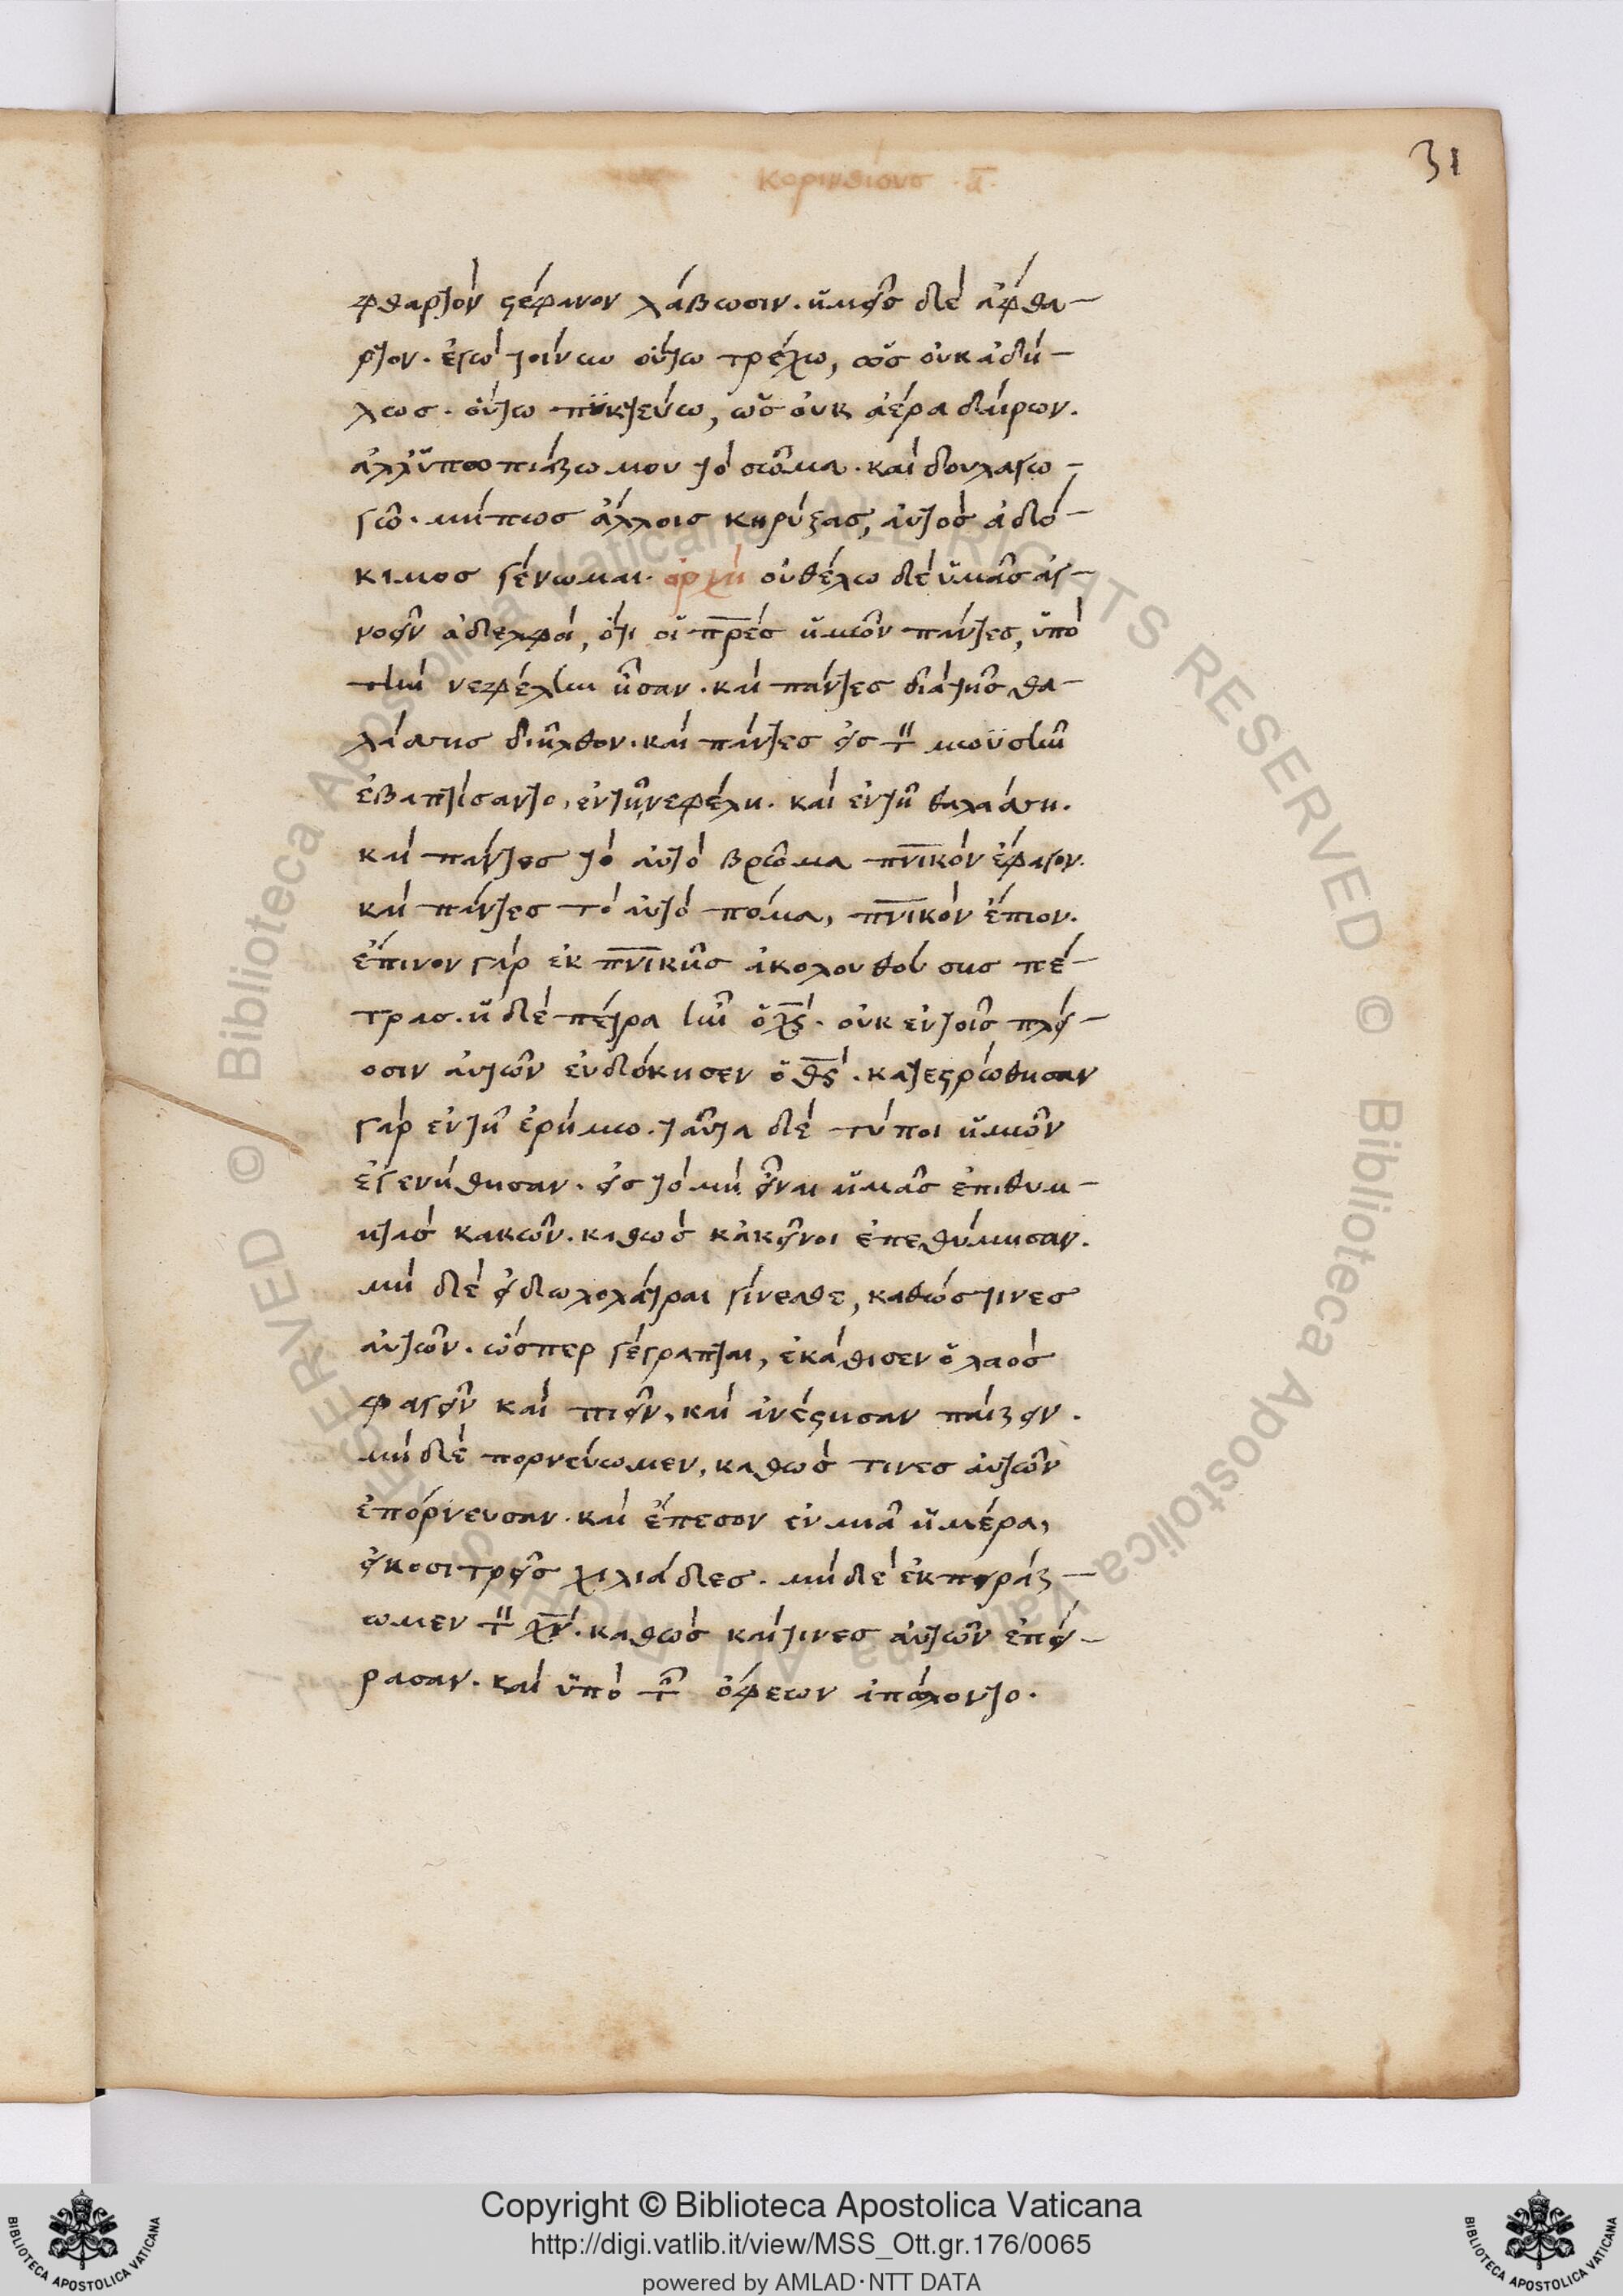 31
κορινθίους · α̅ ·
φθαρτὸν στέφανον λάβωσιν· ὑμεῖς δὲ ἄφθα-
ρτον· ἐγὼ τοίνυν οὕτω τρέχω, ὡς οὐκ ἀδή-
λως· οὕτω πυκτεύω, ὡς οὐκ ἀέρα δαίρων·
ἀλλ' ὑποπιάζω μου τὸ σῶμα· καὶ δουλαγω-
γῶ· μήπως ἄλλοις κηρύξας, αὐτὸς ἀδό-
κιμος γένωμαι· ἀρχὴ οὐ θέλω δὲ ὑμᾶς ἀγ-
νοεῖν ἀδελφοί, ὅτι οἱ π̅ρ̅ε̅ς ἡμῶν πάντες, ὑπὸ
τὴν νεφέλην ἦσαν· καὶ πάντες διὰ τῆς θα-
λάσσης διῆλθον· καὶ πάντες εἰς τὸν μωϋσῆν
ἐβαπτίσαντο, ἐν τῇ νεφέλη· καὶ ἐν τῇ θαλάσση·
καὶ πάντες τὸ αὐτὸ βρῶμα π̅ν̅ικὸν ἔφαγον·
καὶ πάντες τὸ αὐτὸ πόμα, π̅ν̅ικὸν ἔπιον·
ἔπινον γὰρ ἐκ π̅ν̅ικῆς ἀκολουθούσης πέ-
τρας· ἡ δὲ πέτρα ἦν ὁ χ̅ς̅· οὐκ ἐν τοῖς πλεί-
οσιν αὐτῶν εὐδόκησεν ὁ θ̅ς̅· κατεστρώθησαν
γὰρ ἐν τῇ ἐρήμω· ταῦτα δὲ τύποι ἡμῶν
ἐγενήθησαν· εἰς τὸ μὴ εἶναι ἡμᾶς ἐπιθυμ-
ητὰς κακῶν· καθὼς κἀκεῖνοι ἐπεθύμησαν·
μὴ δὲ εἰδωλολάτραι γίνεσθε, καθὼς τινες
αὐτῶν· ὥσπερ γέγραπται, ἐκάθισεν ὁ λαὸς
φαγεῖν καὶ πιεῖν, καὶ ἀνέστησαν παίζειν·
μὴ δὲ πορνεύωμεν, καθὼς τινες αὐτῶν
ἐπόρνευσαν· καὶ ἔπεσον ἐν μιᾶ ἡμέρα,
εἴκοσι τρεῖς χιλιάδες· μὴ δὲ ἐκπειράζ-
ωμεν τὸν χ̅ν̅· καθὼς καί τινες αὐτῶν ἐπεί-
ρασαν· καὶ ὑπὸ τῶν ὄφεων ἀπώλοντο·
© Biblioteca Apostolica Vaticana ALL RIGHTS RESERVED © Biblioteca Apostolica Vaticana ALL RIGHTS RESERVED
Copyright © Biblioteca Apostolica Vaticana
http://digi.vatlib.it/view/MSS_Ott.gr.176/0065
powered by AMLAD·NTT DATA
BIBLIOTECA APOSTOLICA VATICANA
BIBLIOTECA APOSTOLICA VATICANA